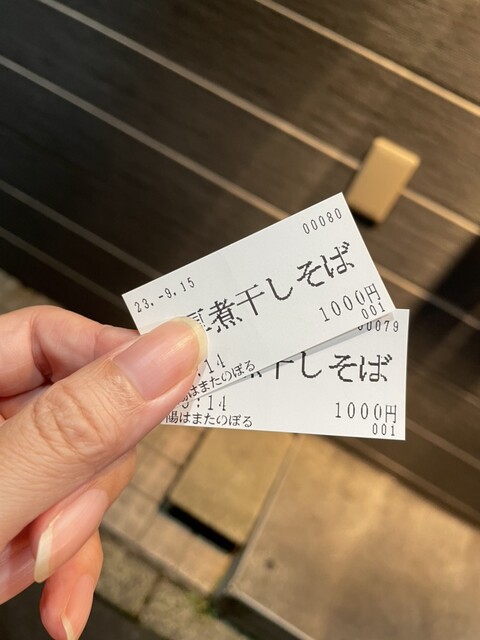 00080
23.-9.15
煮干しそば
1000円
001
:14
はまたのぼる
00079
干しそば
1000円
:14
001
陽はまたのぼる